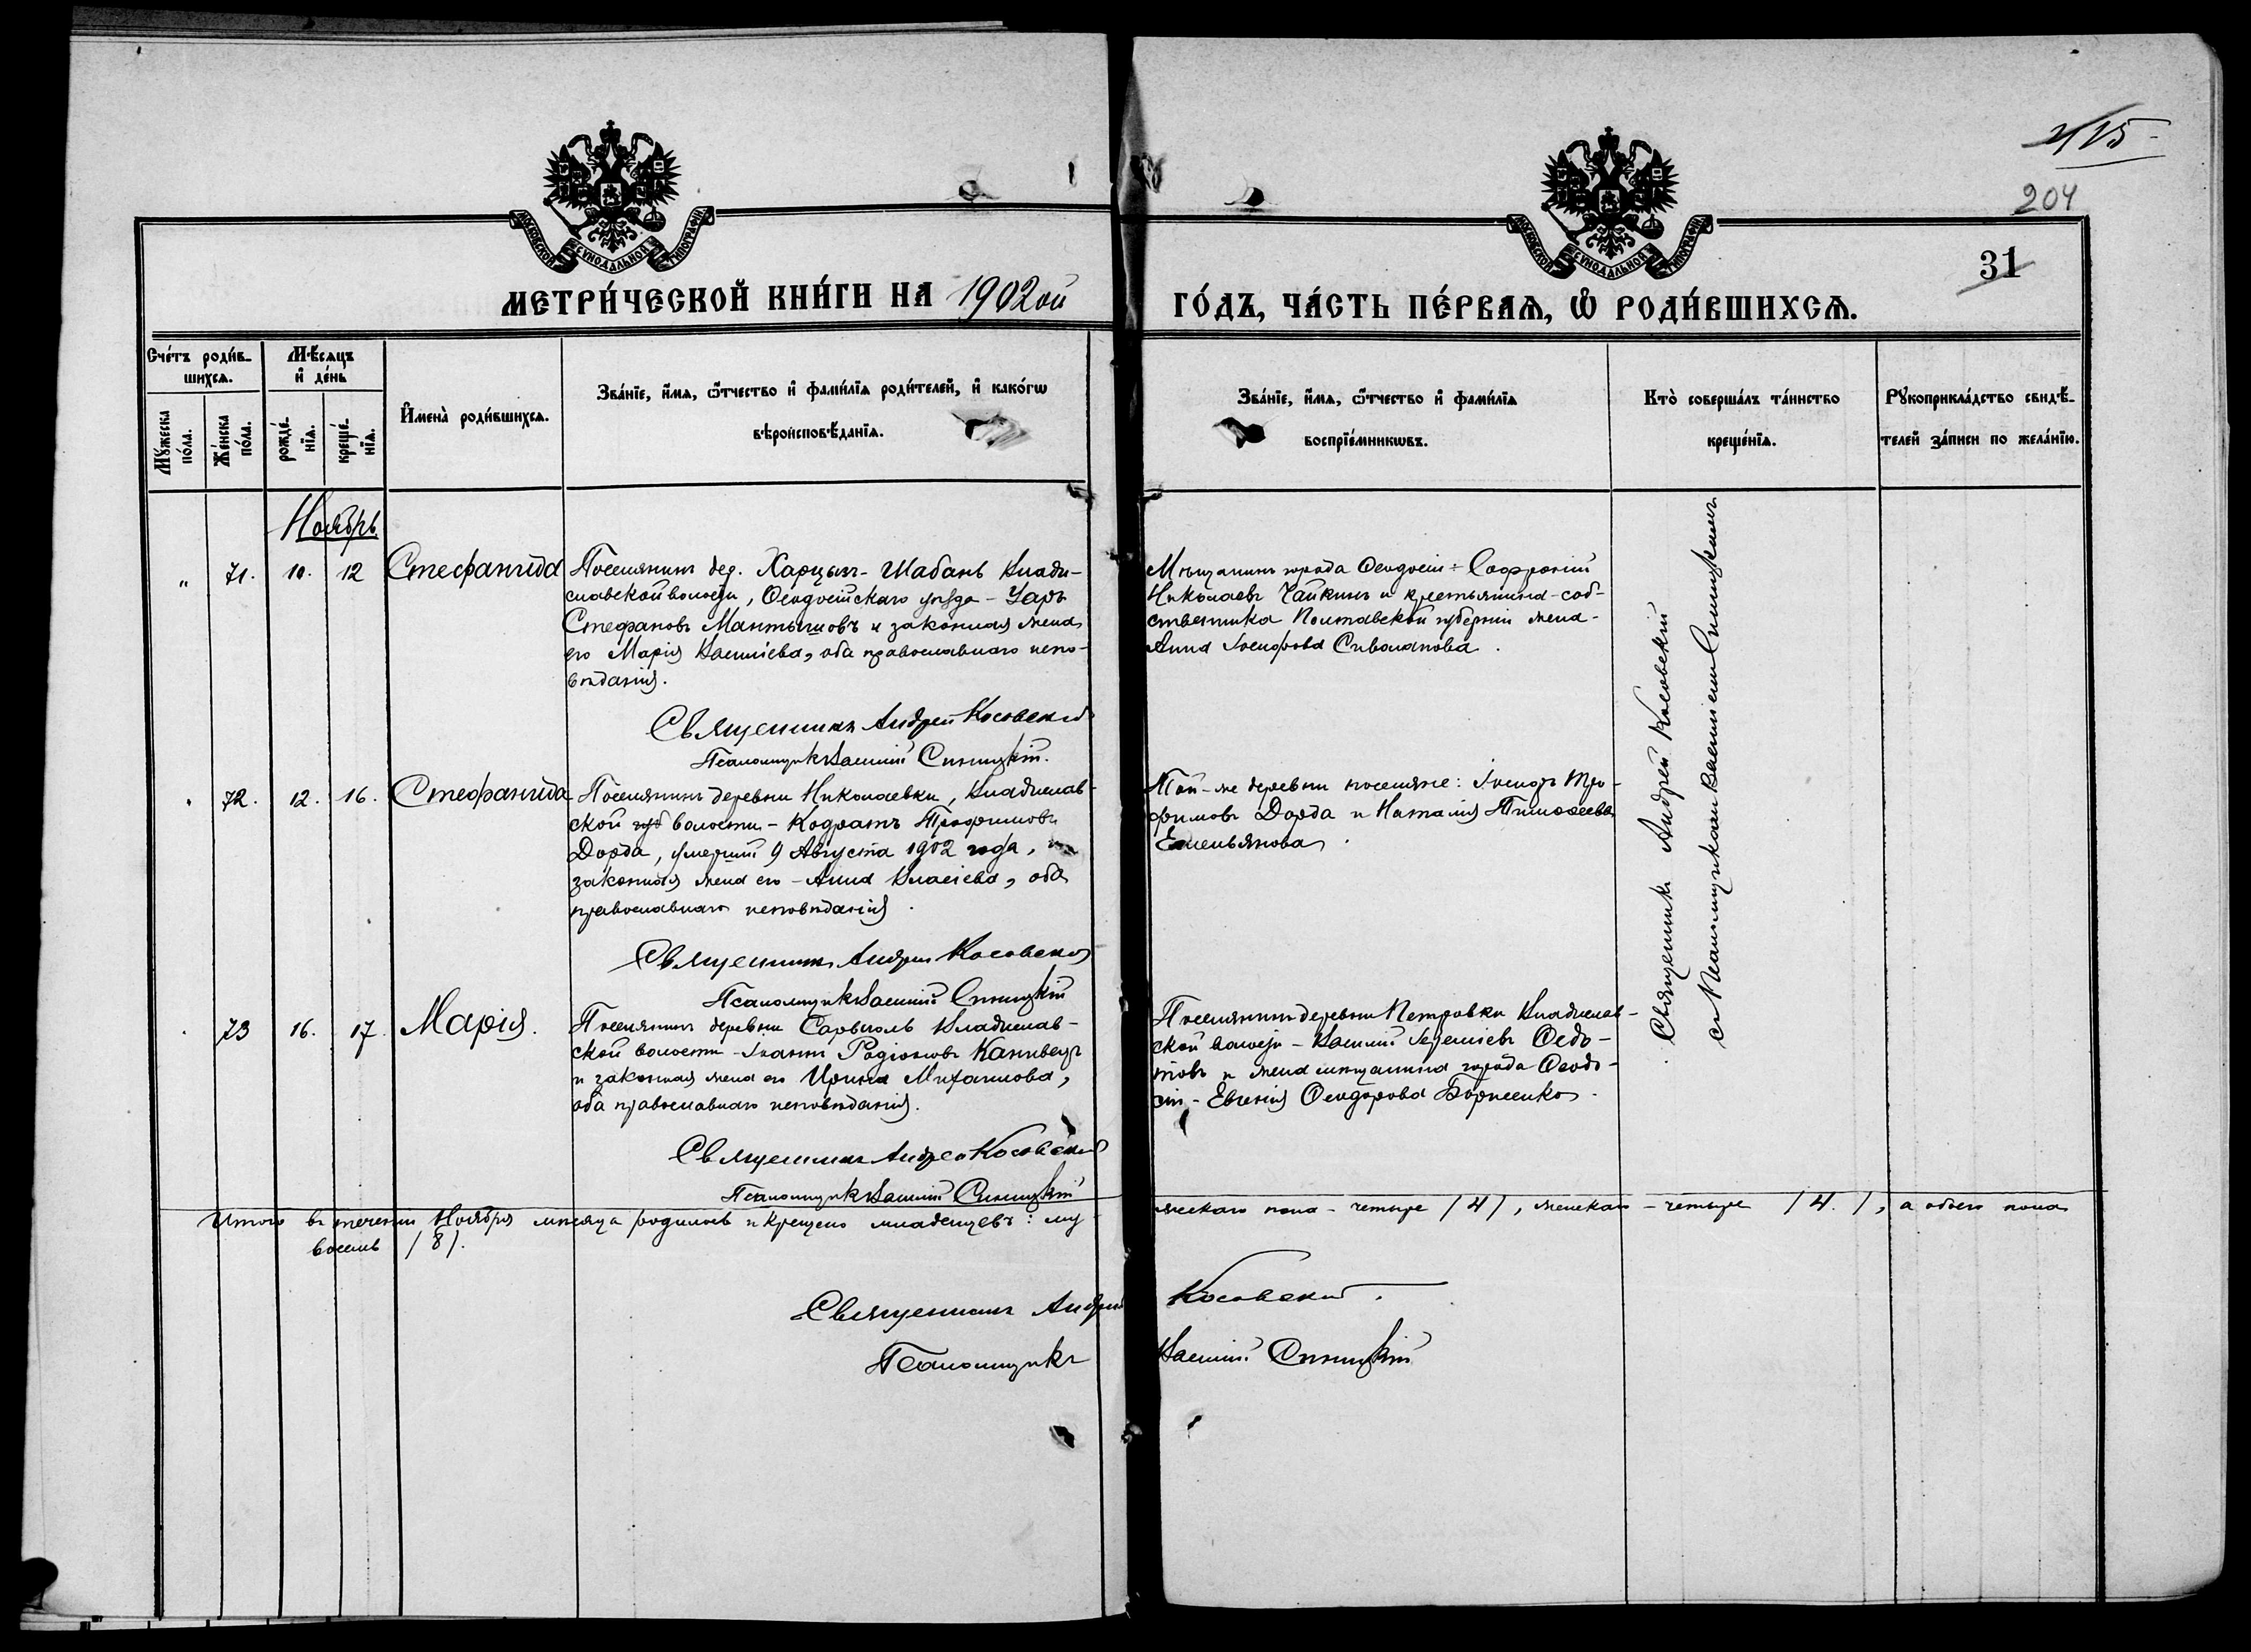 415
204
31
МОСКОВСКОЙ СУНОДАЛЬНОЙ ТИПОГРАФІИ
МОСКОВСКОЙ СУНОДАЛЬНОЙ ТИПОГРАФІИ
МЕТРИ́ЧЕСКОЙ КНИ́ГИ НА 1902ой
ГО́ДЪ, ЧА́СТЬ ПЕ́РВАѦ, Ѡ҆ РОДИ́ВШИХСѦ.
Сче́тъ роди́в-
шихсѧ.
Мꙋ́жеска
по́ла.
Же́нска
по́ла.
Мѣ́сѧцъ
и҆ де́нь
рожде́-
нїѧ.
креще́-
нїѧ.
И҆мена̀ роди́вшихсѧ.
Зва́нїе, и҆́мѧ, ѻ҆́тчество и҆ фами́лїѧ роди́телей, и҆ како́гѡ
вѣроисповѣ́данїѧ.
Зва́нїе, и҆́мѧ, ѻ҆́тчество и҆ фами́лїѧ
воспрїе́мникѡвъ.
Кто̀ соверша́лъ та́инство
креще́нїѧ.
Рꙋкоприкла́дство свидѣ́-
телей за́писи по жела́нїю.
Ноябрь.
" 71. 10. 12 Стефанида
Поселянинъ дер. Харцызъ-Шабань Влади-
славской волости, Ѳеодосійскаго уѣзда - Уаръ
Стефановъ Мантышовъ и законная жена
его Марія Василіева, оба православнаго испо-
вѣданія.
Священникъ Андрей Косовскій
Псаломщикъ Василій Синицкій.
Мѣщанинъ города Ѳеодосіи - Софроній
Николаевъ Чайкинъ и крестьянина-соб-
ственника Полтавской губерніи жена-
Анна Іосифова Сиволанова.
Священникъ Андрей Косовскій
съ Псаломщикомъ Василіемъ Синицкимъ
" 72. 12. 16. Стефанида
Поселянинъ деревни Николаевки, Владислав-
ской волости - Кодратъ Трофимовъ
Дорда, умершій 9 Августа 1902 года, и
законная жена его - Анна Власіева, оба
православнаго исповѣданія.
Священникъ Андрей Косовскій
Псаломщикъ Василій Синицкій
Той-же деревни поселяне: Іосифъ Тро-
фимовъ Дорда и Наталія Тимоѳеева
Емельянова.
" 73 16. 17. Марія.
Поселянинъ деревни Сарыголь Владислав-
ской волости - Іоаннъ Родіоновъ Канивецъ
и законная жена его Ирина Михаилова,
оба православнаго исповѣданія.
Священникъ Андрей Косовскій
Псаломщикъ Василій Синицкій
Поселянинъ деревни Петровки Владислав-
ской волости - Василій Іереміевъ Ѳедо-
товъ и жена мѣщанина города Ѳеодо-
сіи - Евгенія Ѳеодорова Борисенко.
Итого въ теченіи Ноября мѣсяца родилось и крещено младенцевъ: му-жескаго пола - четыре /4/, женскаго - четыре /4./, а обоего пола
восемь /8/.
Священникъ Андрей Косовскій.
Псаломщикъ Василій Синицкій